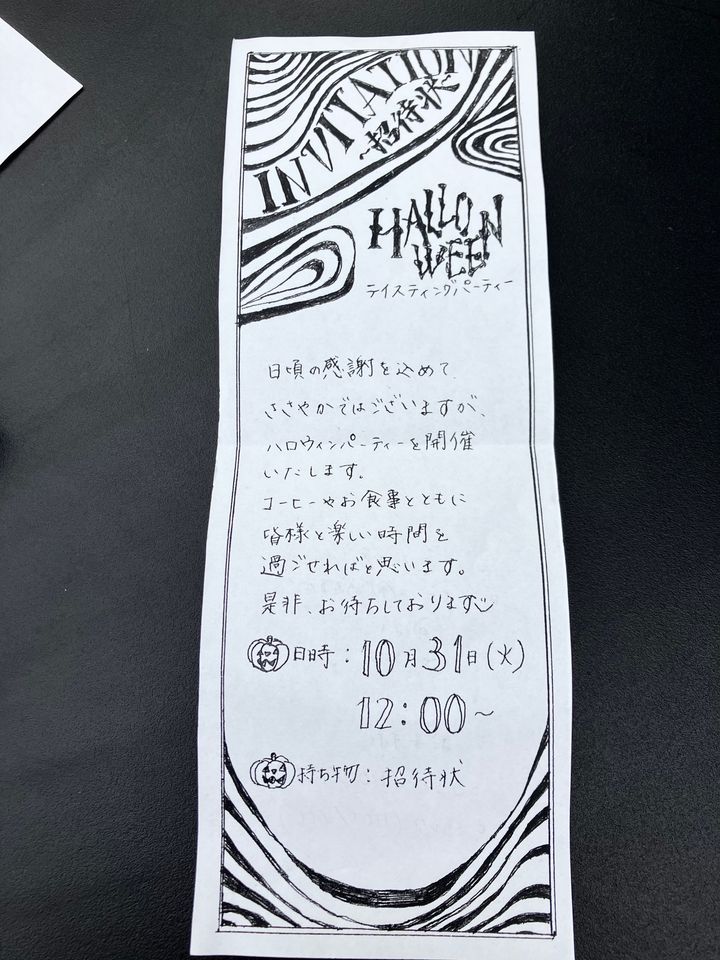 INVITATION
～招待状～
HALLOWEEN
テイスティングパーティー
日頃の感謝を込めて
ささやかではございますが、
ハロウィンパーティーを開催
いたします。
コーヒーやお食事とともに
皆様と楽しい時間を
過ごせればと思います。
是非、お待ちしております
日時：10月31日(火)
12：00～
持ち物：招待状